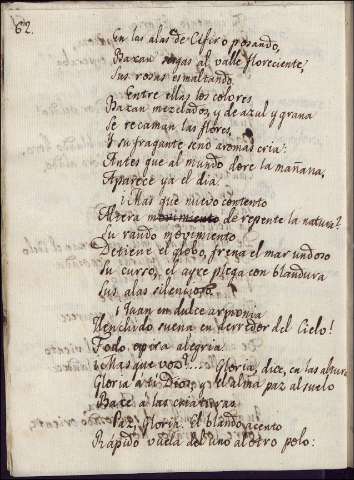 62.
En las alas de Cefiro posando,
Baxan al valle floreciente,
Sus rosas esmaltando.
Entre ellas los colores
Baxan mezclados, y de azul y grana
Se recaman las flores,
Y su fragante seno aromas cria:
Antes que al mundo dore la mañana,
Aparece ya el dia.
¡Mas que nuevo contento
Altera movimiento de repente la natura?
Su raudo movimiento
Detiene el globo, frena el mar undoso
Su curso, el ayre plega con blandura
Sus alas silencioso.
¡Quan en dulce armonia
Henchido suena en derredor del Cielo!
Todo opora alegria.
¡Mas que voz?... Gloria, dice, en las alturas
Gloria á ti Dios, y el alma paz al suelo
Baxe á las criaturas.
Paz, Gloria. El blando acento
Rápido vuela del uno al otro polo: